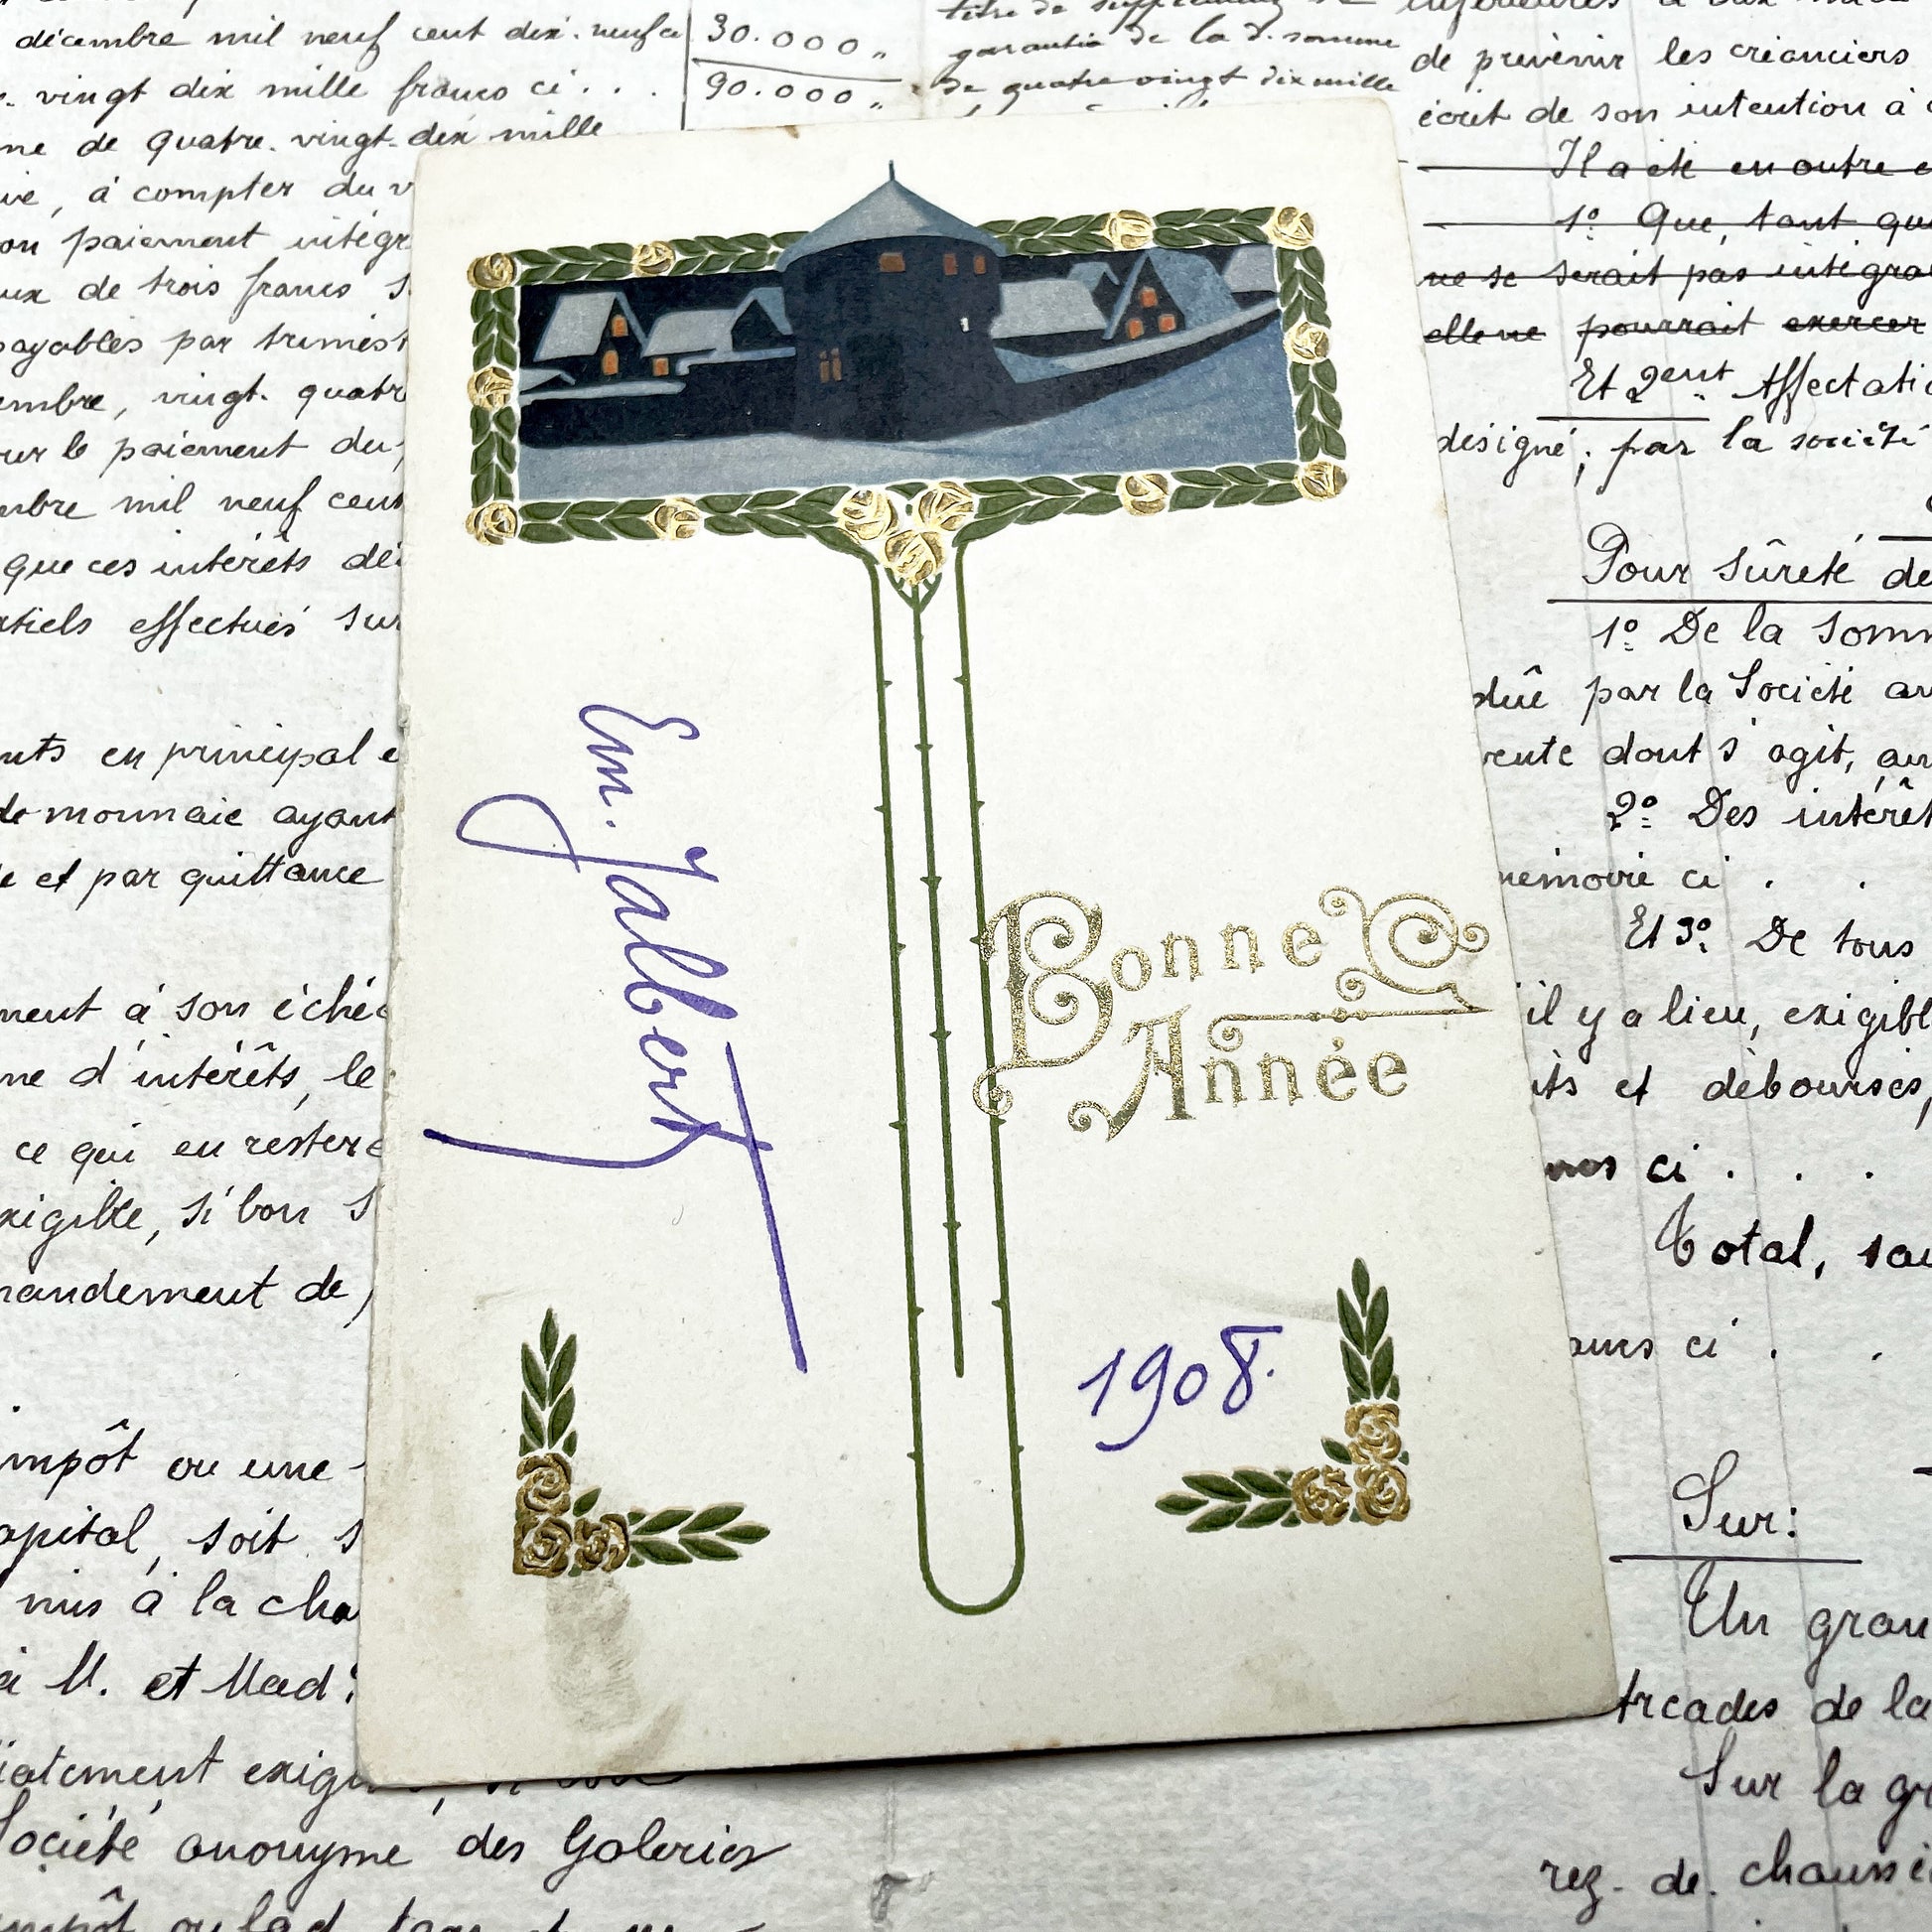 décembre mil neuf cent dix-neuf ci
30.000 "
vingt dix mille francs ci . . .
90.000 "
ne de quatre-vingt-dix mille
à compter du
paiement intégr
de trois francs
payables par trimest
embre, vingt-quatre
sur le paiement du
mbre mil neuf cent
que ces intérêts
rtiels effectués sur
nts en principal
de monnaie ayant
et par quittance
ment à son éché
ne d'intérêts, le
ce qui en rester
xigible, si bon
mandement de
impôt ou une
apital, soit
mis à la cha
à M. et Mad:
iatement exig
Société anonyme des Galeries
garantie de la d. somme
de quatre vingt dix mille
Bonne
Année
Em. Jalbert
1908.
de prévenir les créanciers
écrit de son intention à
Il a été en outre
1º Que, tant que
ne se serait pas intégra
elle ne pourrait exercer
Et 2ent Affectati
désigné, par la société
Pour sûreté de
1º De la somm
dûe par la Société
vente dont s'agit,
2º Des intérêt
mémoire ci . .
Et 3º De tous
il y a lieu, exigibl
its et débourses,
ci . . .
Total,
ci . .
Sur:
Un gran
Arcades de la
Sur la gr
rez-de-chaussé